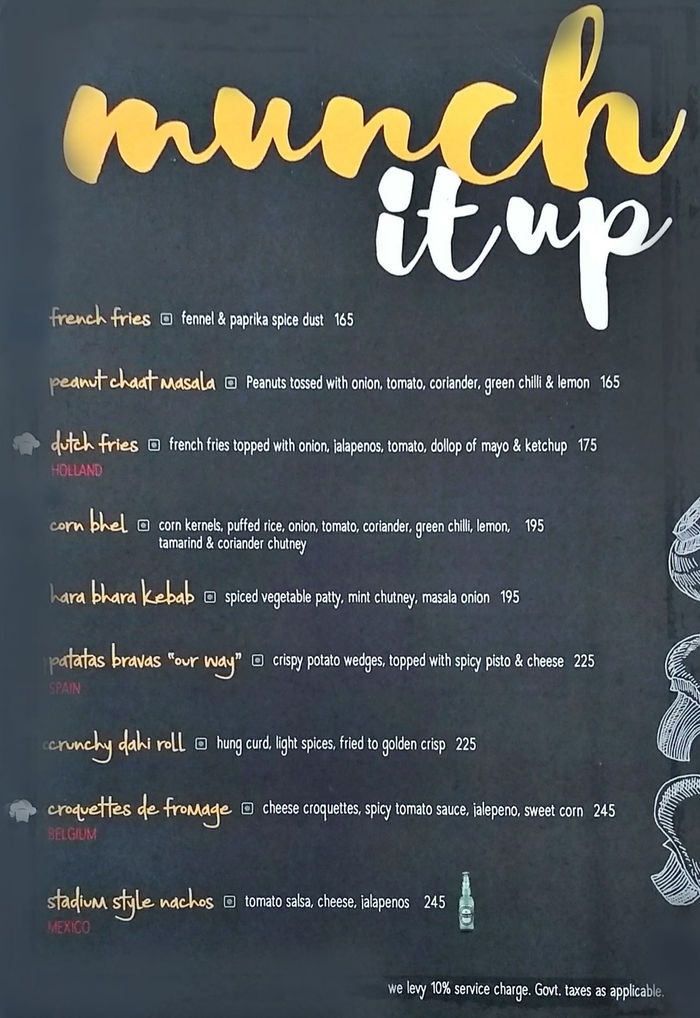 munch
it up
french fries fennel & paprika spice dust 165
peanut chaat masala Peanuts tossed with onion, tomato, coriander, green chilli & lemon 165
dutch fries french fries topped with onion, jalapenos, tomato, dollop of mayo & ketchup 175
HOLLAND
corn bhel corn kernels, puffed rice, onion, tomato, coriander, green chilli, lemon, 195
tamarind & coriander chutney
hara bhara kebab spiced vegetable patty, mint chutney, masala onion 195
patatas bravas "our way" crispy potato wedges, topped with spicy pisto & cheese 225
SPAIN
crunchy dahi roll hung curd, light spices, fried to golden crisp 225
croquettes de fromage cheese croquettes, spicy tomato sauce, jalepeno, sweet corn 245
BELGIUM
stadium style nachos tomato salsa, cheese, jalapenos 245
MEXICO
we levy 10% service charge. Govt. taxes as applicable.